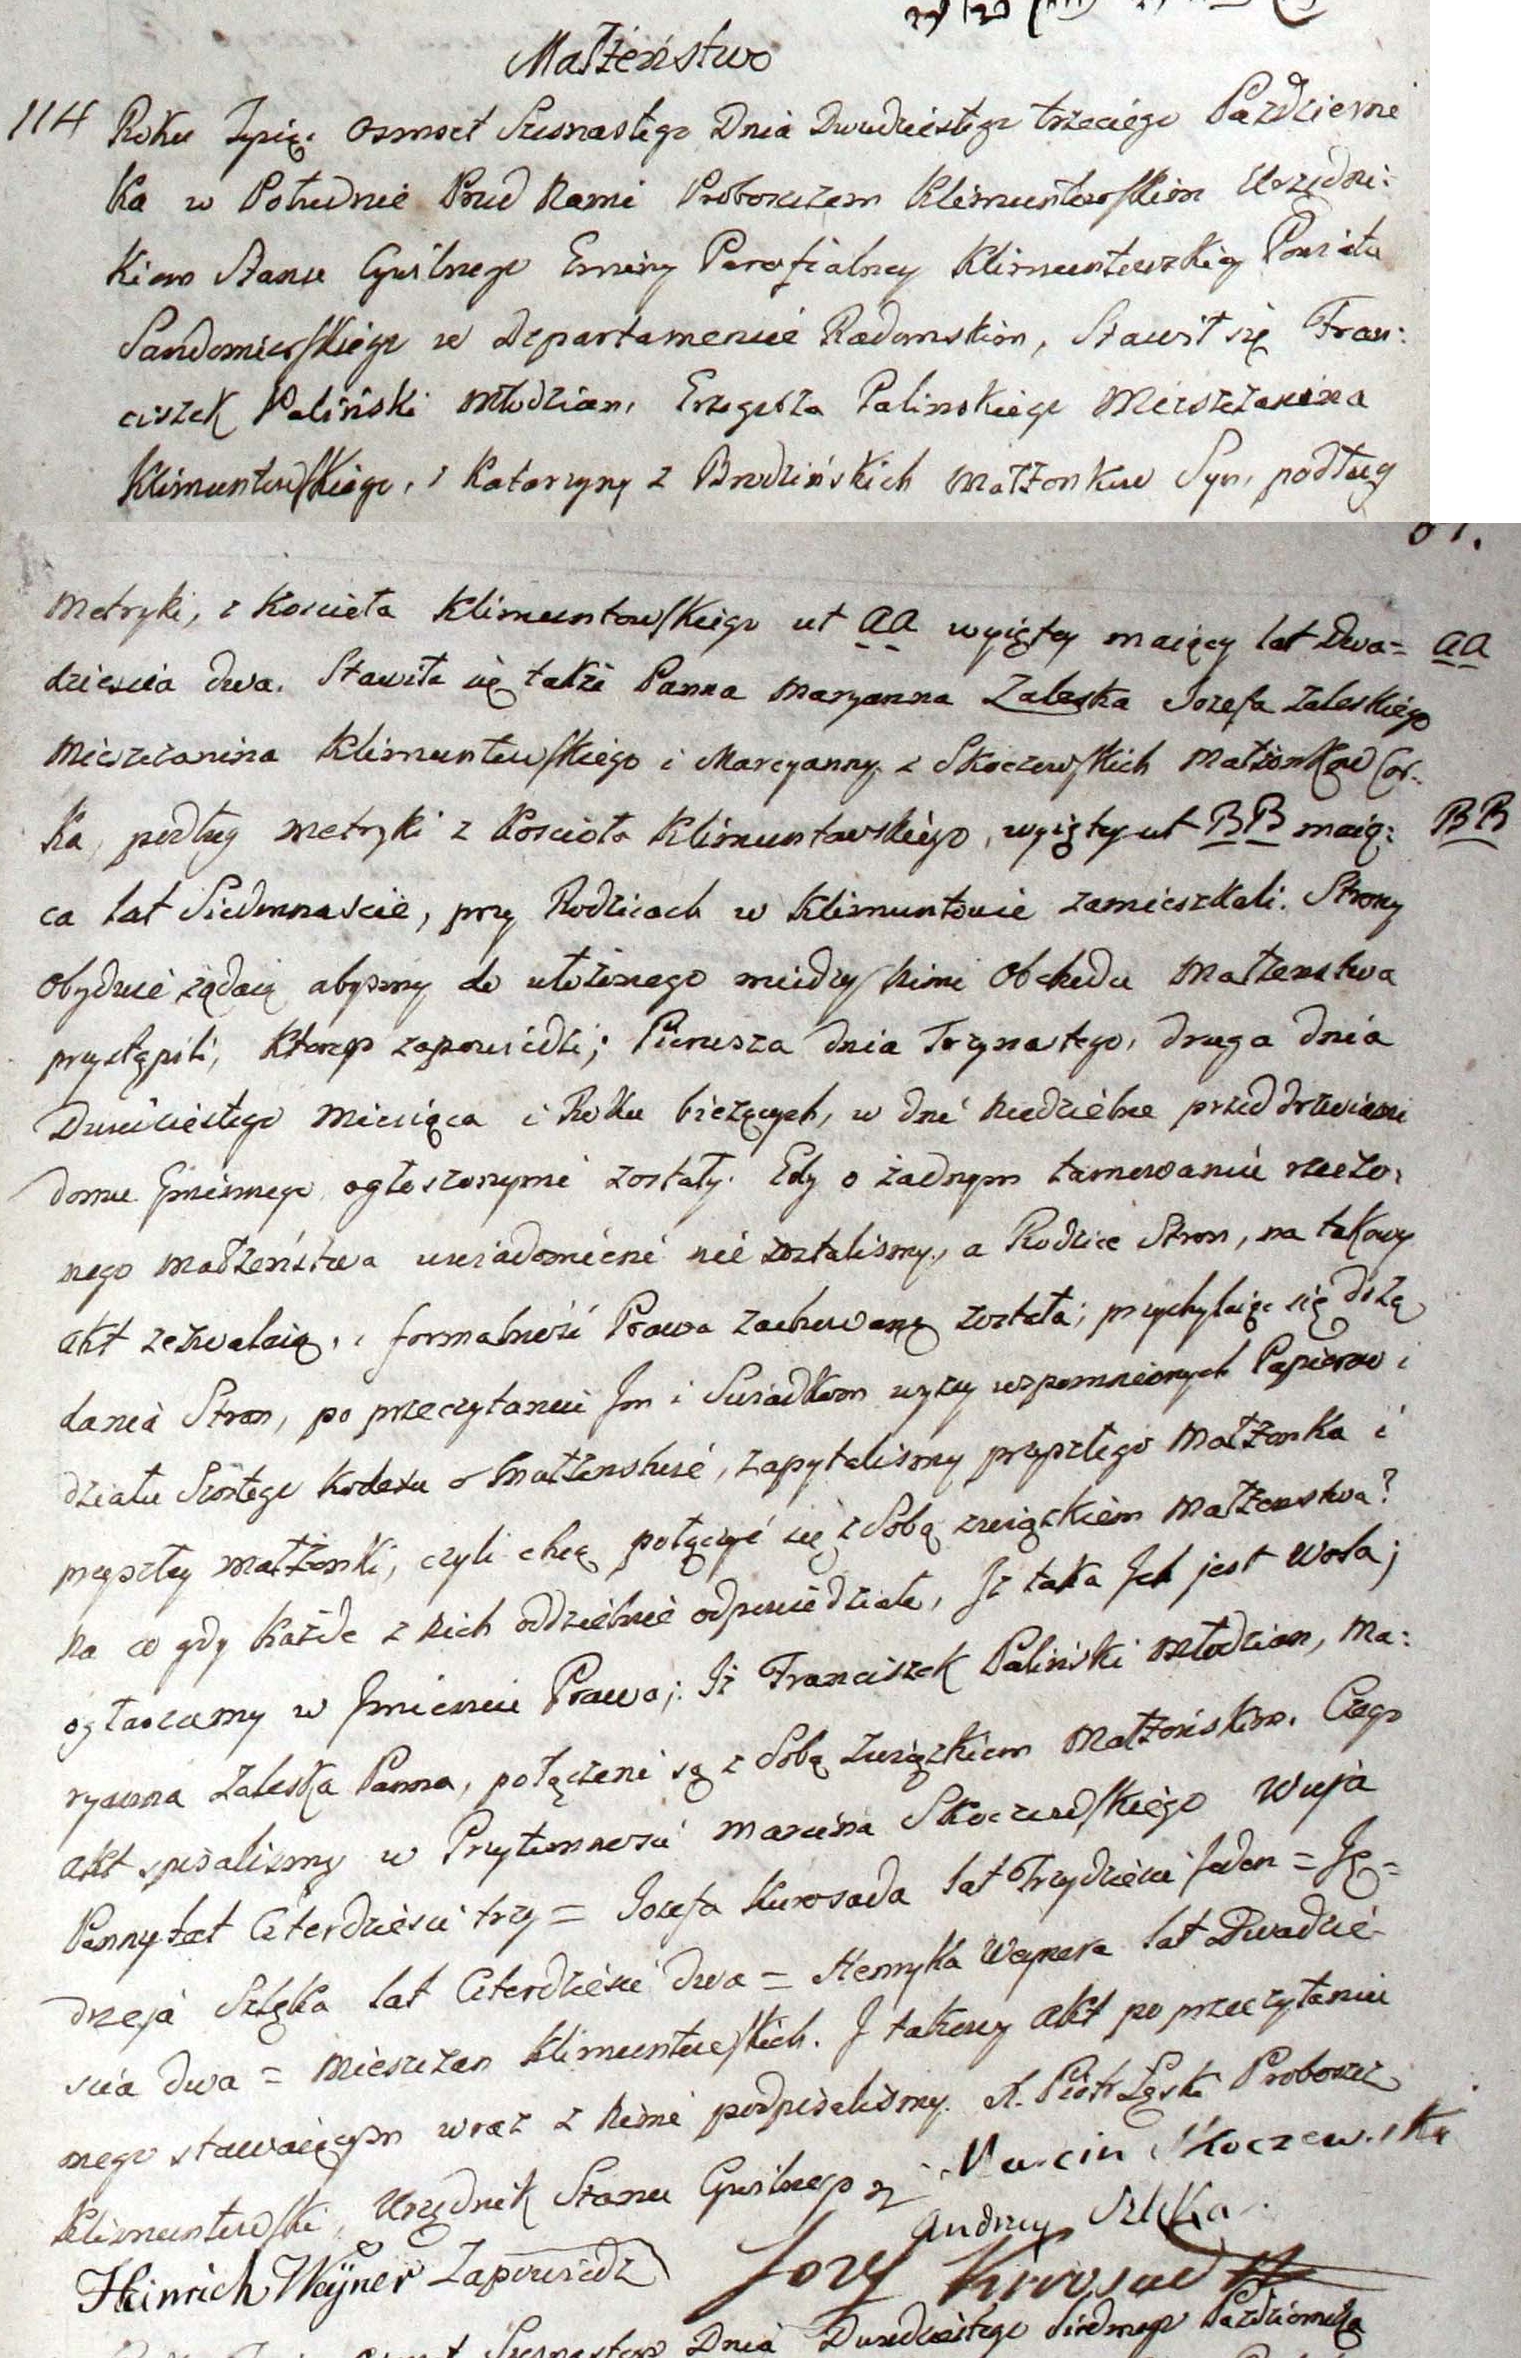 Małżeństwo
114 Roku Tysią: osmset Szesnastego Dnia Dwudziestego trzeciego Pazdzierni
ka w Południe Przed Nami Proboszczem Klimuntowskim Urzędni:
kiem Stanu Cywilnego Gminy Parafialney Klimuntowskiey Powiatu
Sandomierskiego w Departamencie Radomskim, Stawił się Fran:
ciszek Paliński Młodzian, Grzegorza Palinskiego Mieszczanina
Klimuntowskiego, i Katarzyny z Brodzińskich Małżonkow Syn, podług
Metryki, z Koscioła Klimuntowskiego ut aa wyiętey maiący lat Dwa= aa
dziescia dwa. Stawiła się także Panna Maryanna Zaleska Jozefa Zaleskiego
Mieszczanina Klimuntowskiego i Maryanny z Skoczewskich Małżonkow Cor..
ka, podług metryki z Koscioła Klimuntowskiego, wyiętey ut BB maią: BB
ca lat Siedmnascie, przy Rodzicach w Klimuntowie zamieszkali. Strony
obydwie żądaią abysmy do ułożonego między Nimi Obchodu Małżenstwa
przystąpili, ktorego zapowiedzi; Pierwsza dnia Trzynastego, druga dnia
Dwudziestego Miesiąca i Roku bieżących, w dni Niedzielne przed drzwiami
domu Gminnego ogłoszonymi zostały. Gdy o żadnym tamowaniu rzeczo:
nego małżeństwa uwiadomieni nie zostalismy, a Rodzice Stron, na takowy
akt zezwalaią, i formalność Prawa zachowaną została; przychylaiąc się do żą
dania Stron, po przeczytaniu Im i Swiadkom wyzey wspomnionych Papierow i
działu Szostego Kodexu o Małżenstwie, zapytalismy przyszłego Małżonka i
przyszłey Małżonki, czyli chcą połączyć się z Sobą związkiem Małżenstwa?
Na co gdy każde z Nich oddzielnie odpowiedziało, Iż taka Ich jest Wola;
ogłaszamy w Imieniu Prawa; Iż Franciszek Paliński Młodzian, Ma:
ryanna Zaleska Panna, połączeni są z Sobą Związkiem Małżeńskim. Czego
akt spisalismy w Przytomnosci Marcina Skoczewskiego Wuja
Panny lat Czterdziesci trzy = Jozefa Kurosada lat Trzydziesci Jeden = Ję=
drzeja Szlęka lat Czterdziesci dwa = Henryka Waynera lat Dwadzie-
scia dwa = Mieszczan Klimuntowskich. I takowy akt po przeczytaniu
onego stawaiącym wraz z Nimi podpisalismy. X. Piotr Zęski Proboszcz
Klimuntowski, Urzędnik Stanu Cywilnego Marcin Skoczewski
Andrzy Szlęka
Heinrich Waÿner Zapowiedz Jozef Kurosad
Szesnastego Dnia Dwudziestego Siodmego Pazdziernika